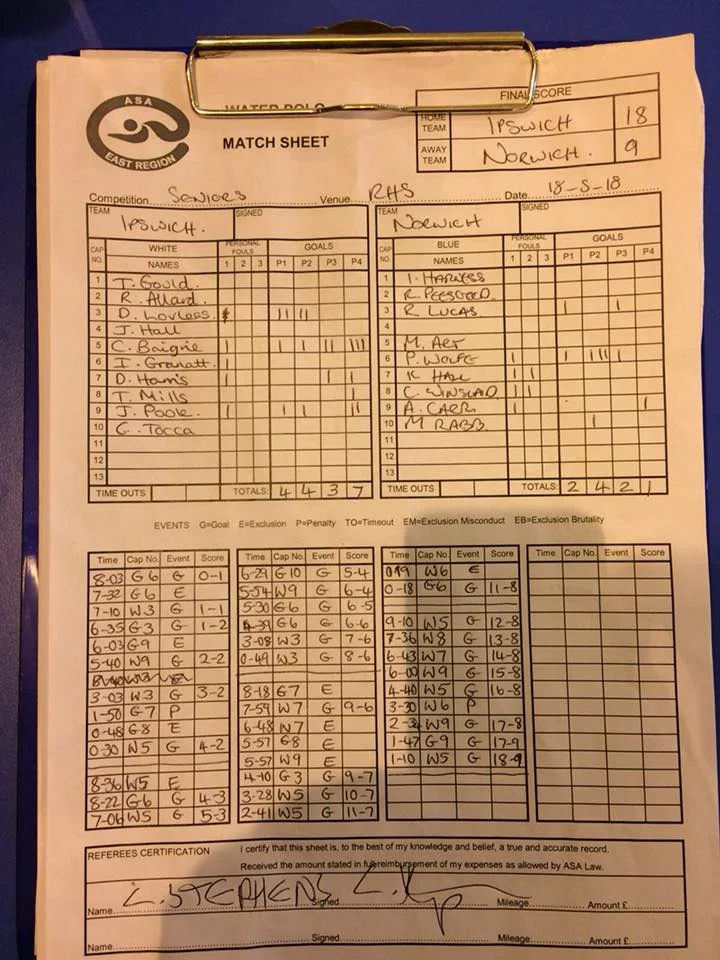 ASA
EAST REGION
WATER POLO
MATCH SHEET
FINAL SCORE
HOME TEAM IPSWICH 18
AWAY TEAM NORWICH. 9
Competition SENIORS Venue RHS Date 18-5-18
TEAM IPSWICH. SIGNED
CAP NO. WHITE NAMES PERSONAL FOULS 1 2 3 GOALS P1 P2 P3 P4
1 T. Gould
2 R. Allard.
3 D. Lovless. II II
4 J. Hall
5 C. Baigrie I I I II III
6 I. Granatt I
7 D. Harris I I I
8 T. Mills I
9 J. Poole. I I I II
10 C. Tocca
11
12
13
TIME OUTS TOTALS: 4 4 3 7
TEAM NORWICH SIGNED
CAP NO. BLUE NAMES PERSONAL FOULS 1 2 3 GOALS P1 P2 P3 P4
1 I. HARNESS
2 R. PEESGOOD.
3 R LUCAS I I
4
5 M. ART
6 P. WOLFE I I III I
7 K HALL I I
8 C. WINSLAD I I
9 A. CARR I I
10 M RABB I
11
12
13
TIME OUTS TOTALS: 2 4 2 1
EVENTS G=Goal E=Exclusion P=Penalty TO=Timeout EM=Exclusion Misconduct EB=Exclusion Brutality
Time Cap No. Event Score
8-03 G6 G 0-1
7-32 G6 E
7-10 W3 G 1-1
6-35 G3 G 1-2
6-03 G9 E
5-40 W9 G 2-2
3-03 W3 G 3-2
1-50 G7 P
0-48 G8 E
0-30 W5 G 4-2
8-36 W5 E
8-22 G6 G 4-3
7-06 W5 G 5-3
Time Cap No. Event Score
6-29 G10 G 5-4
5-54 W9 G 6-4
5-30 G6 G 6-5
4-39 G6 G 6-6
3-08 W3 G 7-6
0-49 W3 G 8-6
8-18 G7 E
7-59 W7 G 9-6
6-48 W7 E
5-57 G8 E
5-57 W9 E
4-10 G3 G 9-7
3-28 W5 G 10-7
2-41 W5 G 11-7
Time Cap No. Event Score
W6 E
0-18 G6 G 11-8
9-10 W5 G 12-8
7-36 W8 G 13-8
6-43 W7 G 14-8
6-00 W9 G 15-8
4-40 W5 G 16-8
3-30 W6 P
2-34 W9 G 17-8
1-47 G9 G 17-9
1-10 W5 G 18-9
Time Cap No. Event Score
REFEREES CERTIFICATION I certify that this sheet is, to the best of my knowledge and belief, a true and accurate record.
Received the amount stated in full reimbursement of my expenses as allowed by ASA Law.
Name L. STEPHENS Signed Mileage Amount £
Name Signed Mileage Amount £